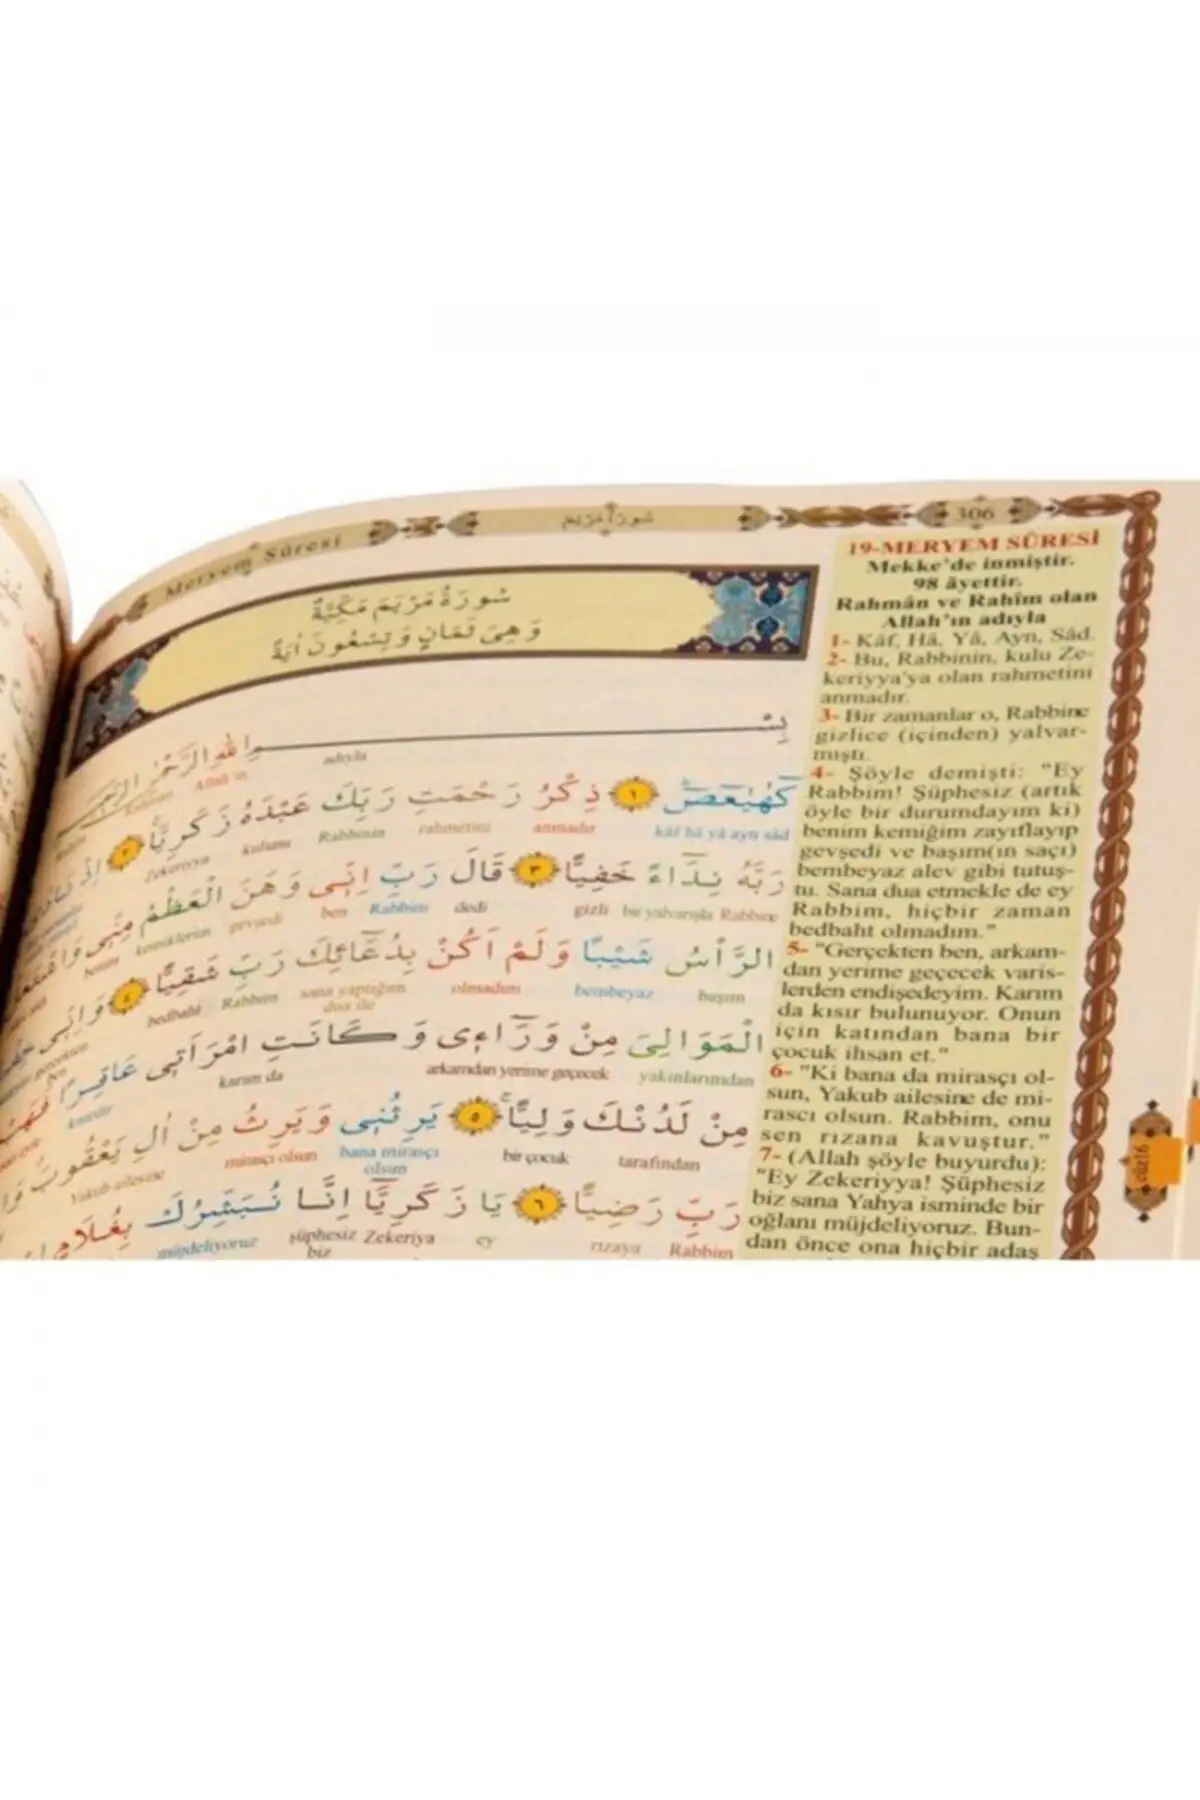 Meryem Sûresi
سُورَةُ مَرْيَمَ
306
سُورَةُ مَرْيَمَ مَكِّيَّةٌ
وَهِىَ ثَمَانٍ وَتِسْعُونَ اٰيَةً
بِسْمِ اللّٰهِ الرَّحْمٰنِ الرَّحٖيمِ
adıyla Allah'ın
كٓهٰيٰعٓصٓ ١ ذِكْرُ رَحْمَتِ رَبِّكَ عَبْدَهُ زَكَرِيَّا ٢ اِذْ
kâf hâ yâ ayn sâd anmadır rahmetini Rabbinin kulunu Zekeriyya
رَبَّهُ نِدَٓاءً خَفِيًّا ٣ قَالَ رَبِّ اِنّٖى وَهَنَ الْعَظْمُ مِنّٖى
Rabbine bir yalvarışla gizli dedi Rabbim ben gevşedi kemiklerim benim
الرَّأْسُ شَيْبًا وَلَمْ اَكُنْ بِدُعَٓائِكَ رَبِّ شَقِيًّا ٤ وَاِنّٖى
başım bembeyaz olmadım sana yaptığım Rabbim bedbaht
dua ile
الْمَوَالِىَ مِنْ وَرَٓاءٖى وَكَانَتِ امْرَاَتٖى عَاقِرًا
yakınlarımdan arkamdan yerime geçecek karım da kısırdır
مِنْ لَدُنْكَ وَلِيًّا ٥ يَرِثُنٖى وَيَرِثُ مِنْ اٰلِ يَعْقُوبَ
tarafından bir çocuk bana mirasçı mirasçı olsun Yakub ailesine
olsun
رَبِّ رَضِيًّا ٦ يَا زَكَرِيَّٓا اِنَّا نُبَشِّرُكَ بِغُلَامٍ
Rabbim rızaya ey Zekeriya şüphesiz müjdeliyoruz
biz
19-MERYEM SÛRESİ
Mekke'de inmiştir.
98 âyettir.
Rahmân ve Rahîm olan
Allah'ın adıyla
1- Kâf, Hâ, Yâ, Ayn, Sâd.
2- Bu, Rabbinin, kulu Ze-
keriyya'ya olan rahmetini
anmadır.
3- Bir zamanlar o, Rabbine
gizlice (içinden) yalvar-
mıştı.
4- Şöyle demişti: "Ey
Rabbim! Şüphesiz (artık
öyle bir durumdayım ki)
benim kemiğim zayıflayıp
gevşedi ve başım(ın saçı)
bembeyaz alev gibi tutuş-
tu. Sana dua etmekle de ey
Rabbim, hiçbir zaman
bedbaht olmadım."
5- "Gerçekten ben, arkam-
dan yerime geçecek varis-
lerden endişedeyim. Karım
da kısır bulunuyor. Onun
için katından bana bir
çocuk ihsan et."
6- "Ki bana da mirasçı ol-
sun, Yakub ailesine de mi-
rascı olsun. Rabbim, onu
sen rızana kavuştur."
7- (Allah şöyle buyurdu):
"Ey Zekeriyya! Şüphesiz
biz sana Yahya isminde bir
oğlanı müjdeliyoruz. Bun-
dan önce ona hiçbir adaş
cüz16